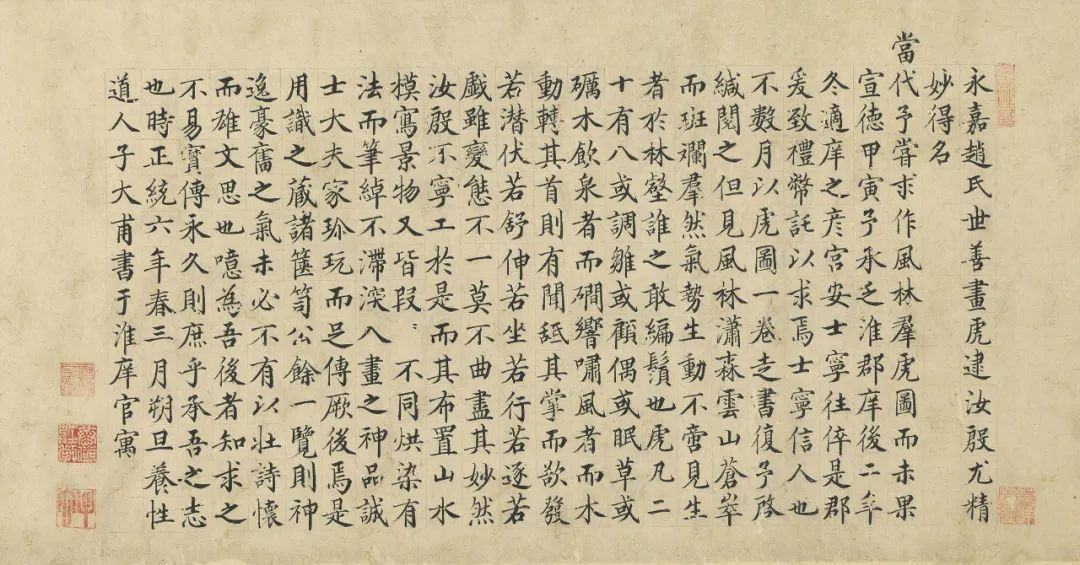 永嘉趙氏世善畫虎逮汝殷尤精
妙得名
當代予嘗求作風林羣虎圖而未果
宣德甲寅予承乏淮郡庠後二年
冬適庠之彥宮安士寧往倅是郡
爰致禮幣託以求焉士寧信人也
不數月以虎圖一卷走書復予啓
緘閱之但見風林瀟森雲山蒼翠
而斑斕羣然氣勢生動不啻見生
者於林壑誰之敢編鬚也虎凡二
十有八或調雛或顧偶或眠草或
礪木飲泉者而磵響嘯風者而木
動轉其首則有聞舐其掌而欲發
若潛伏若舒伸若坐若行若逐若
戲雖變態不一莫不曲盡其妙然
汝殷不寧工於是而其布置山水
模寫景物又皆段〻不同烘染有
法而筆綽不滯深入畫之神品誠
士大夫家珍玩而足傳厥後焉是
用識之藏諸篋笥公餘一覽則神
逸豪奮之氣未必不有以壯詩懷
而雄文思也噫為吾後者知求之
不易寶傳永久則庶乎承吾之志
也時正統六年春三月朔旦養性
道人子大甫書于淮庠官寓